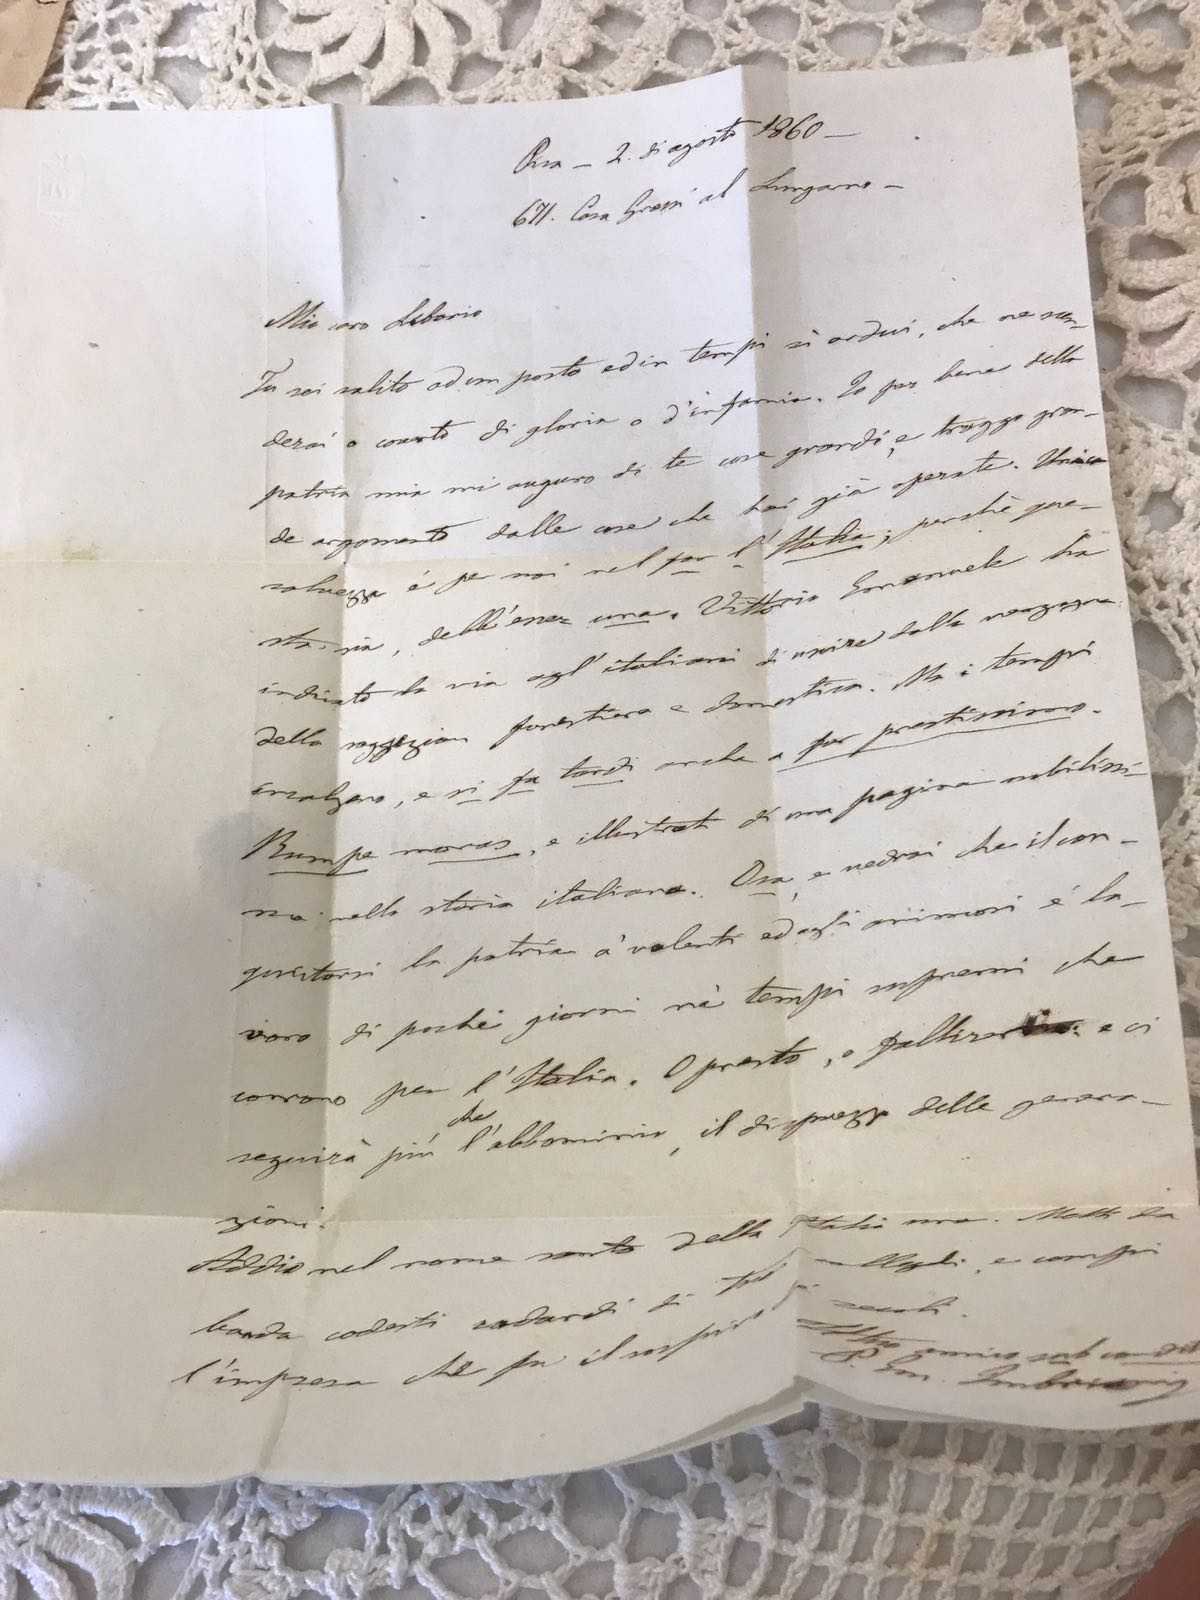 Pisa — 2. di agosto 1860 —
671. Casa Grassi al Lungarno —
Mio caro Liborio
Tu sei salito ad un posto ed in tempi sì ardui, che ne ren-
derai o conto di gloria o d'infamia. Io per bene della
patria mia mi auguro di te cose grandi, e traggo gran-
de argomento dalle cose che hai già operate. Unica
salvezza è per noi nel far l'Italia; perchè que-
sta sia, debb'esser una. Vittorio Emanuele ha
indicato la via agl'italiani di uscire dalla vergogna
della soggezione forestiera e domestica. Ma i tempi
incalzano, e si fa tardi anche a far prestissimo.
Rumpe moras, e illustrati di una pagina nobilissi-
ma nella storia italiana. Osa, e vedrai che il con-
quistarsi la patria a' valenti ed agli animosi è la-
voro di pochi giorni ne' tempi supremi che
corrono per l'Italia. O presto, o fallire e ci
seguirà più che l'abbominio, il disprezzo delle genera-
zioni.
Addio nel nome santo della Italia una. Metti da
banda codesti codardi di tuoi colleghi, e compi
l'impresa che fu il sospiro di secoli.
amico
P. Em. Imbriani